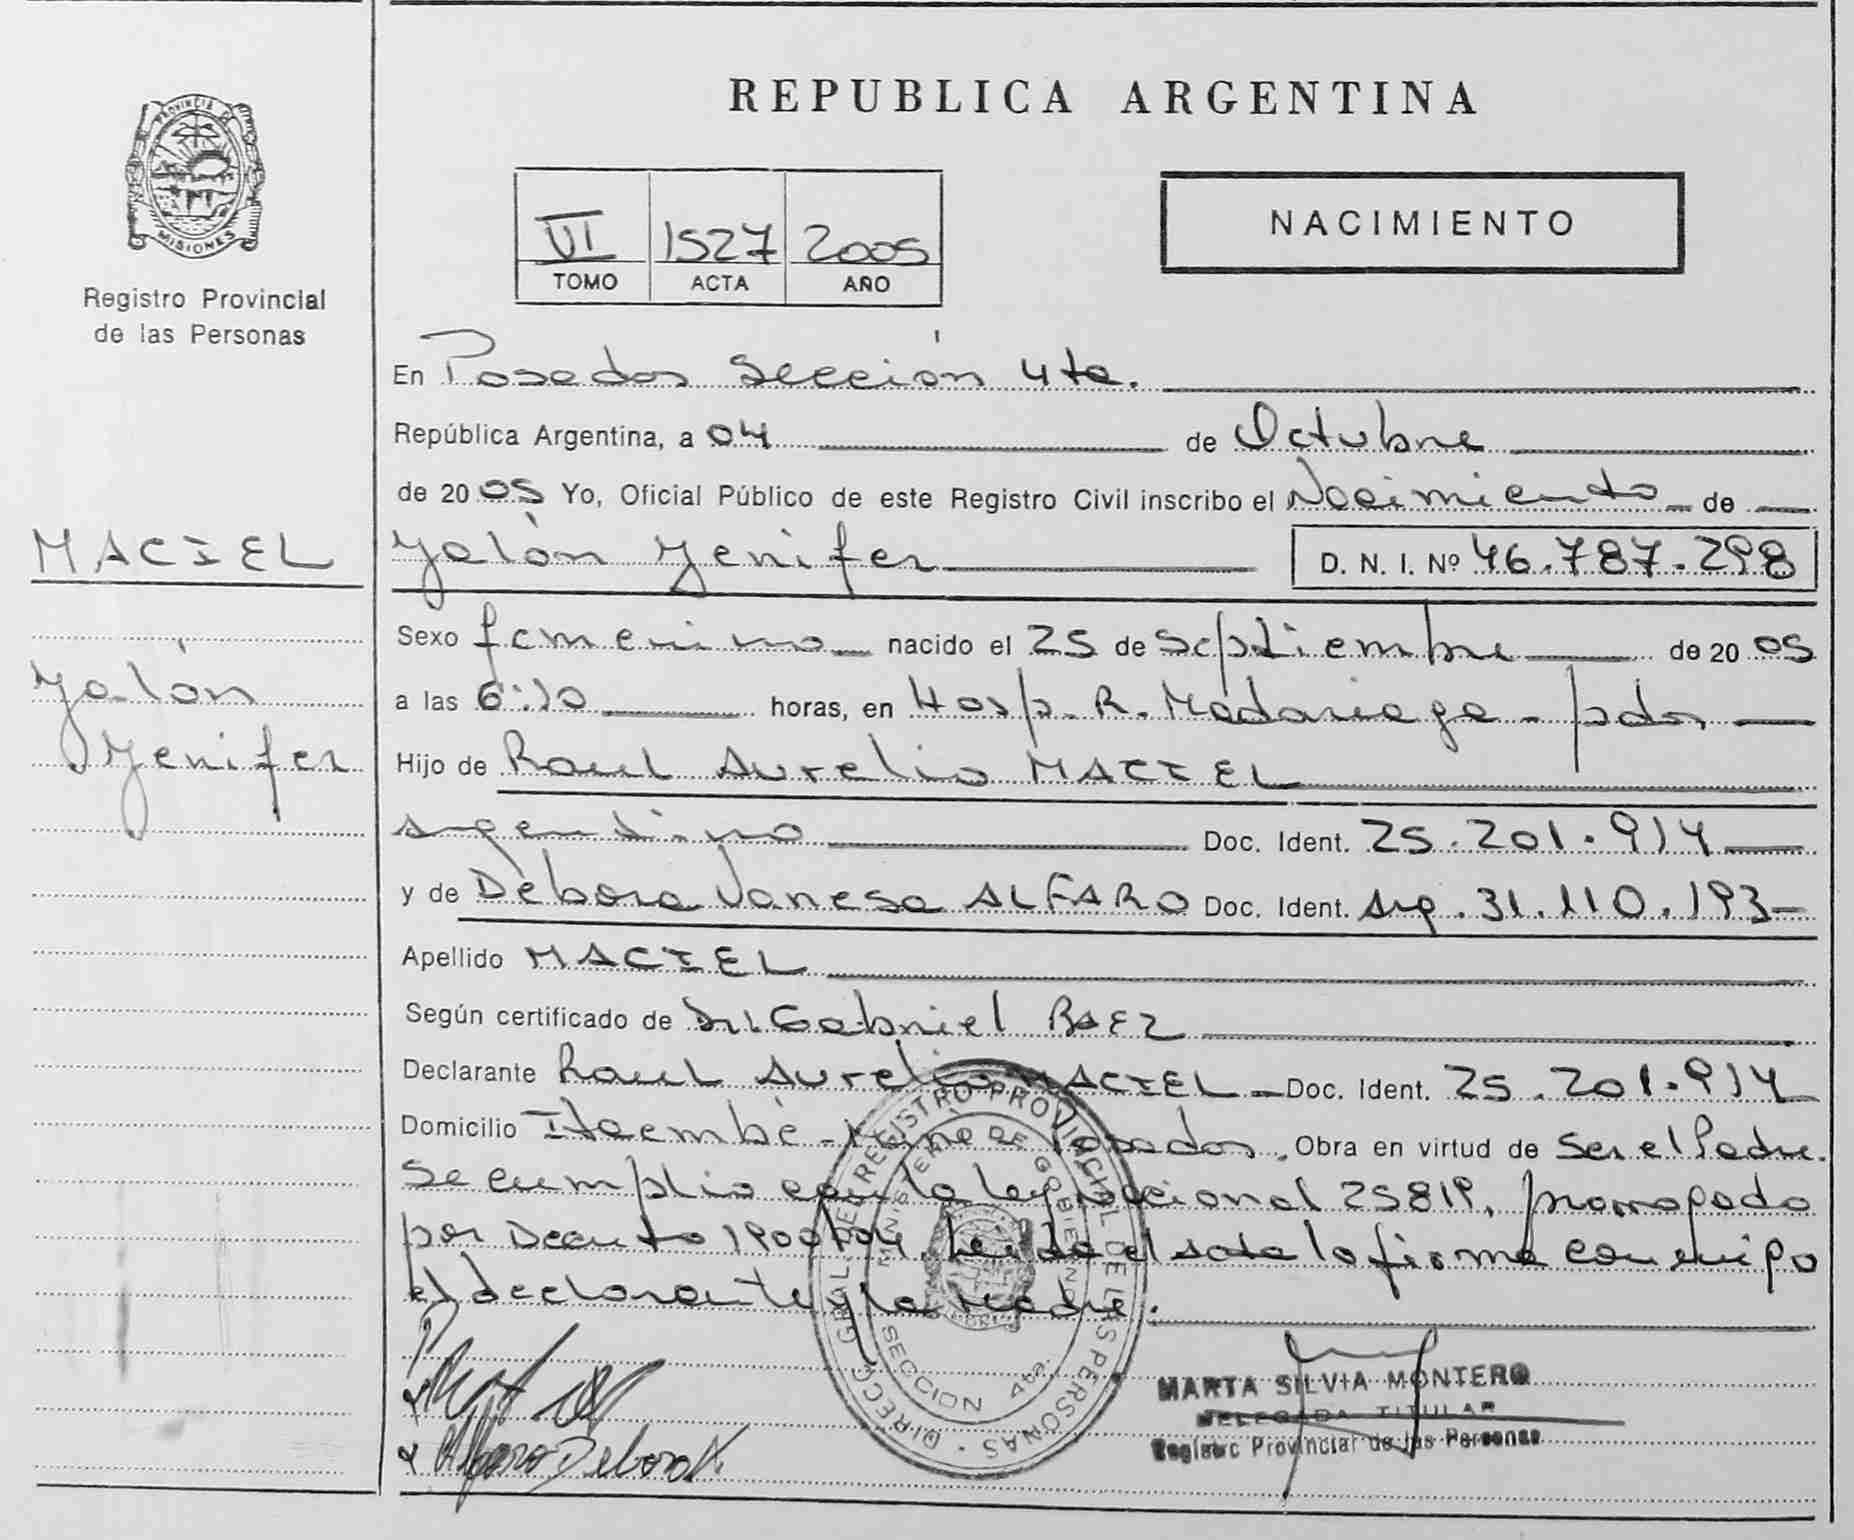 PROVINCIA DE
MISIONES
Registro Provincial
de las Personas
MACIEL
Yalón
Yenifer
REPUBLICA ARGENTINA
VI 1527 2005
TOMO ACTA AÑO
NACIMIENTO
En Posadas Sección 4ta.
República Argentina, a 04 de Octubre
de 2005 Yo, Oficial Público de este Registro Civil inscribo el Nacimiento de
Yalón Yenifer D. N. I. Nº 46.787.298
Sexo femenino nacido el 25 de Septiembre de 2005
a las 6:10 horas, en Hosp. R. Madariaga - pdas
Hijo de Raul Aurelio MACIEL
argentino Doc. Ident. 25.201.914
y de Débora Vanesa ALFARO Doc. Ident. Arg. 31.110.193-
Apellido MACIEL
Según certificado de Dr. Gabriel BAEZ
Declarante Raul Aurelio MACIEL - Doc. Ident. 25.201.914
Domicilio Itaembé - Miní - Posadas. Obra en virtud de Ser el Padre.
Se cumplio con la Ley Nacional 25819, promogada
por Decreto 1900/04. Leida el acta la firma conmigo
el declarante y la Madre.
Alfaro Debora V.
DIRECC. GRAL. DEL REGISTRO PROVINCIAL DE LAS PERSONAS
MINISTERIO DE GOBIERNO
SECCION 4ta.
MARTA SILVIA MONTERO
DELEGADA TITULAR
Registro Provincial de las Personas